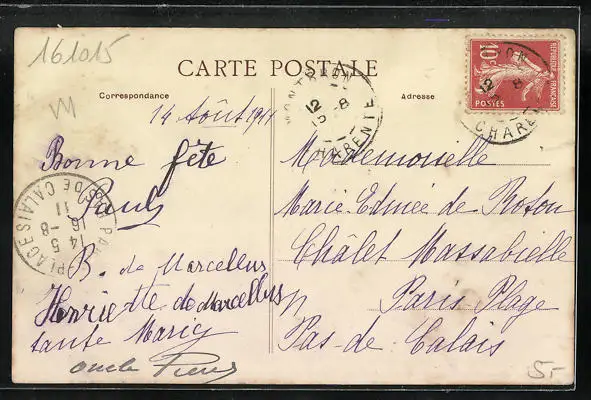 161015
CARTE POSTALE
Correspondance
Adresse
14 Août 1911
Bonne fête
Paul
B. de Marcellus
Henriette de Marcellus
tante Marie
oncle Pierre
MONTBRON
12
15 -8
11
CHARENTE
10c
RÉPUBLIQUE FRANÇAISE
POSTES
12
-8
CHARENTE
Mademoiselle
Marie Edmée de
Châlet Massabielle
Paris Plage
Pas de Calais
PARIS PLAGE
14 5
16 -8
11
PAS DE CALAIS
5-